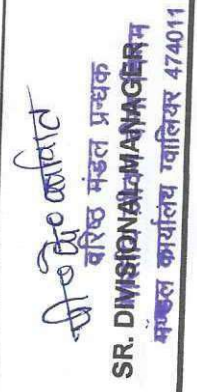 पी०के० कापरि
वरिष्ठ मंडल प्रबन्धक
SR. DIVISIONAL MANAGER
मण्डल कार्यालय ग्वालियर 474011